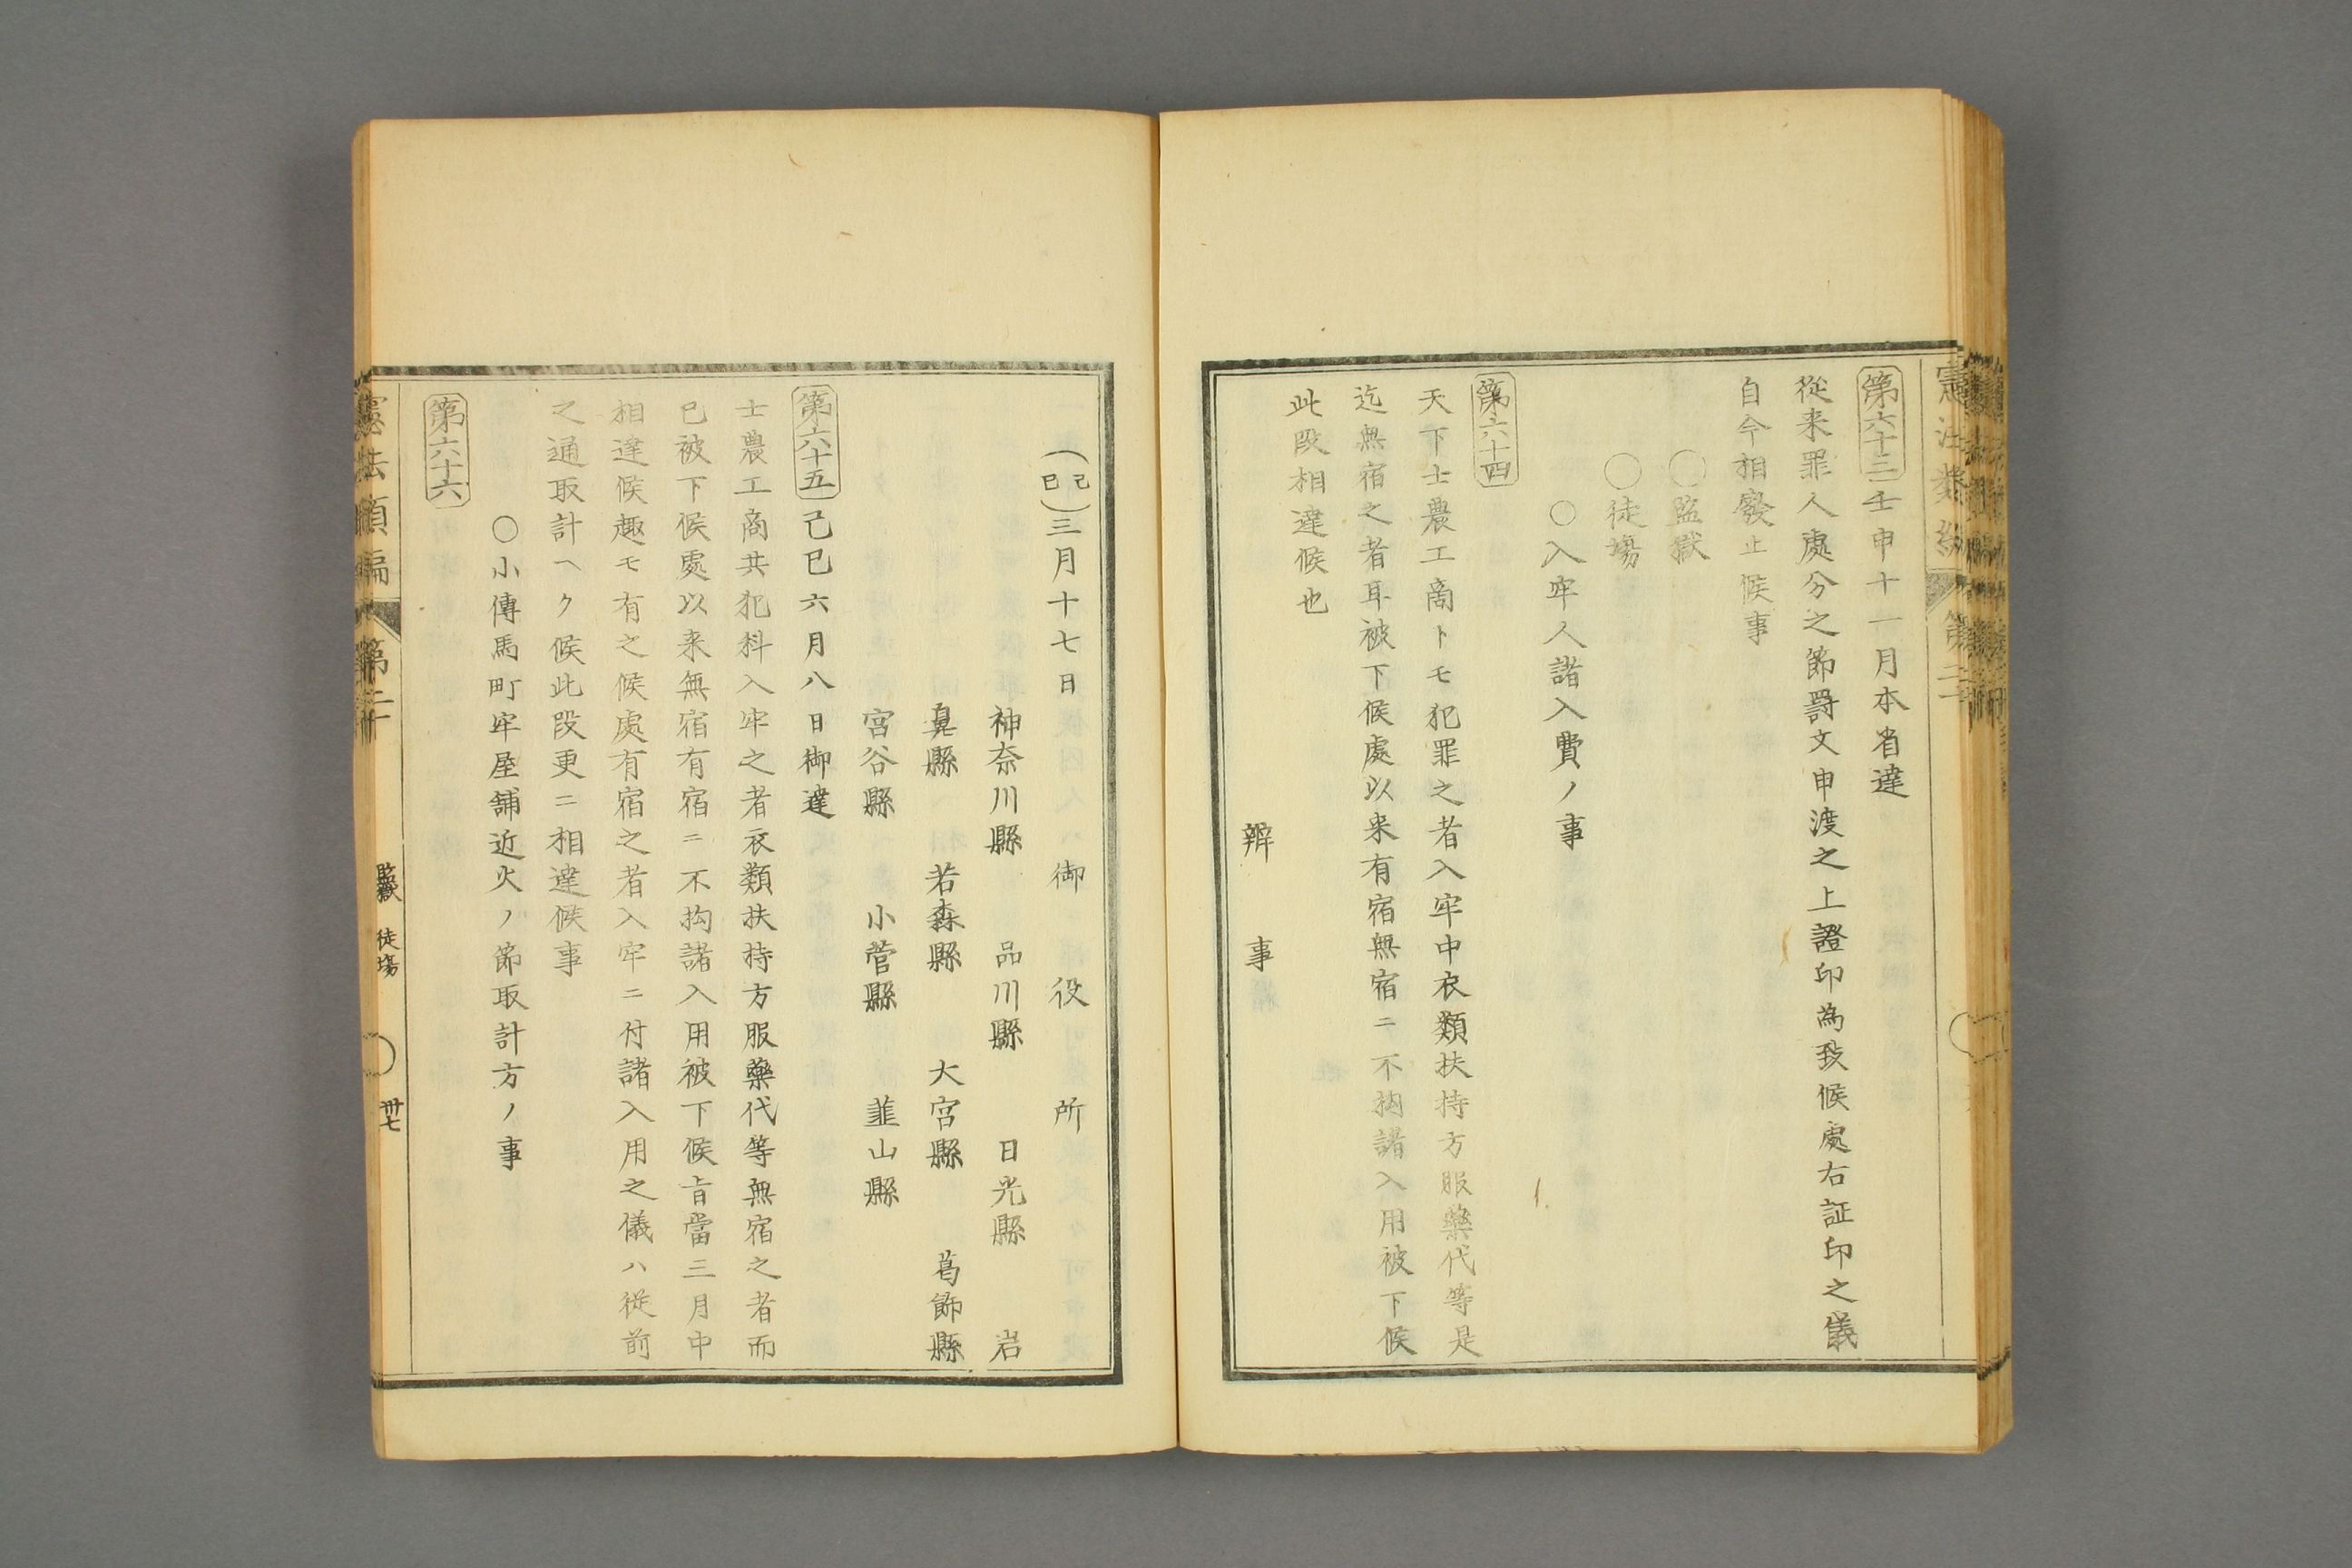 第六十三 壬申十一月本省達
從来罪人處分之節罸文申渡之上證印為致候處右証印之儀
自今相廢止候事
○監獄
○徒場
○入牢人諸入費ノ事
第六十四
天下士農工商トモ犯罪之者入牢中衣類扶持方服藥代等是
迄無宿之者耳被下候處以来有宿無宿ニ不抅諸入用被下候
此段相達候也
辨事
(己巳)三月十七日 御役所
神奈川縣 品川縣 日光縣 岩
鼻縣 若森縣 大宮縣 葛飾縣
宮谷縣 小菅縣 韮山縣
第六十五 己巳六月八日御達
士農工商共犯科入牢之者衣類扶持方服藥代等無宿之者而
已被下候處以来無宿有宿ニ不抅諸入用被下候旨當三月中
相達候趣モ有之候處有宿之者入牢ニ付諸入用之儀ハ従前
之通取計ヘク候此段更ニ相達候事
○小傳馬町牢屋舗近火ノ節取計方ノ事
第六十六
憲法類編 第二十 監獄 徒場 卅七